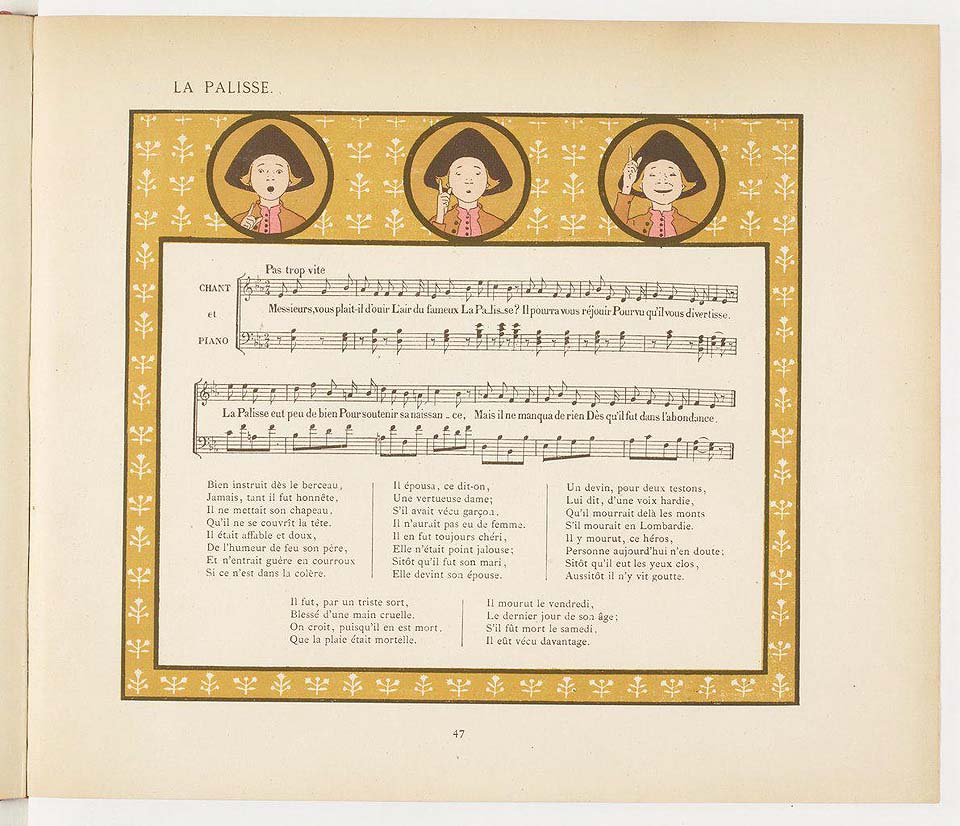 LA PALISSE.
Pas trop vite
CHANT
et
PIANO
Messieurs, vous plait-il d'ouïr L'air du fameux La Palis_se? Il pourra vous réjouir Pourvu qu'il vous divertisse.
La Palisse eut peu de bien Pour soutenir sa naissan _ ce, Mais il ne manqua de rien Dès qu'il fut dans l'abondance.
Bien instruit dès le berceau,
Jamais, tant il fut honnête,
Il ne mettait son chapeau,
Qu'il ne se couvrît la tête.
Il était affable et doux,
De l'humeur de feu son père,
Et n'entrait guère en courroux
Si ce n'est dans la colère.
Il épousa, ce dit-on,
Une vertueuse dame;
S'il avait vécu garçon,
Il n'aurait pas eu de femme.
Il en fut toujours chéri,
Elle n'était point jalouse;
Sitôt qu'il fut son mari,
Elle devint son épouse.
Un devin, pour deux testons,
Lui dit, d'une voix hardie,
Qu'il mourrait delà les monts
S'il mourait en Lombardie.
Il y mourut, ce héros,
Personne aujourd'hui n'en doute;
Sitôt qu'il eut les yeux clos,
Aussitôt il n'y vit goutte.
Il fut, par un triste sort,
Blessé d'une main cruelle.
On croit, puisqu'il en est mort,
Que la plaie était mortelle.
Il mourut le vendredi,
Le dernier jour de son âge;
S'il fût mort le samedi,
Il eût vécu davantage.
47